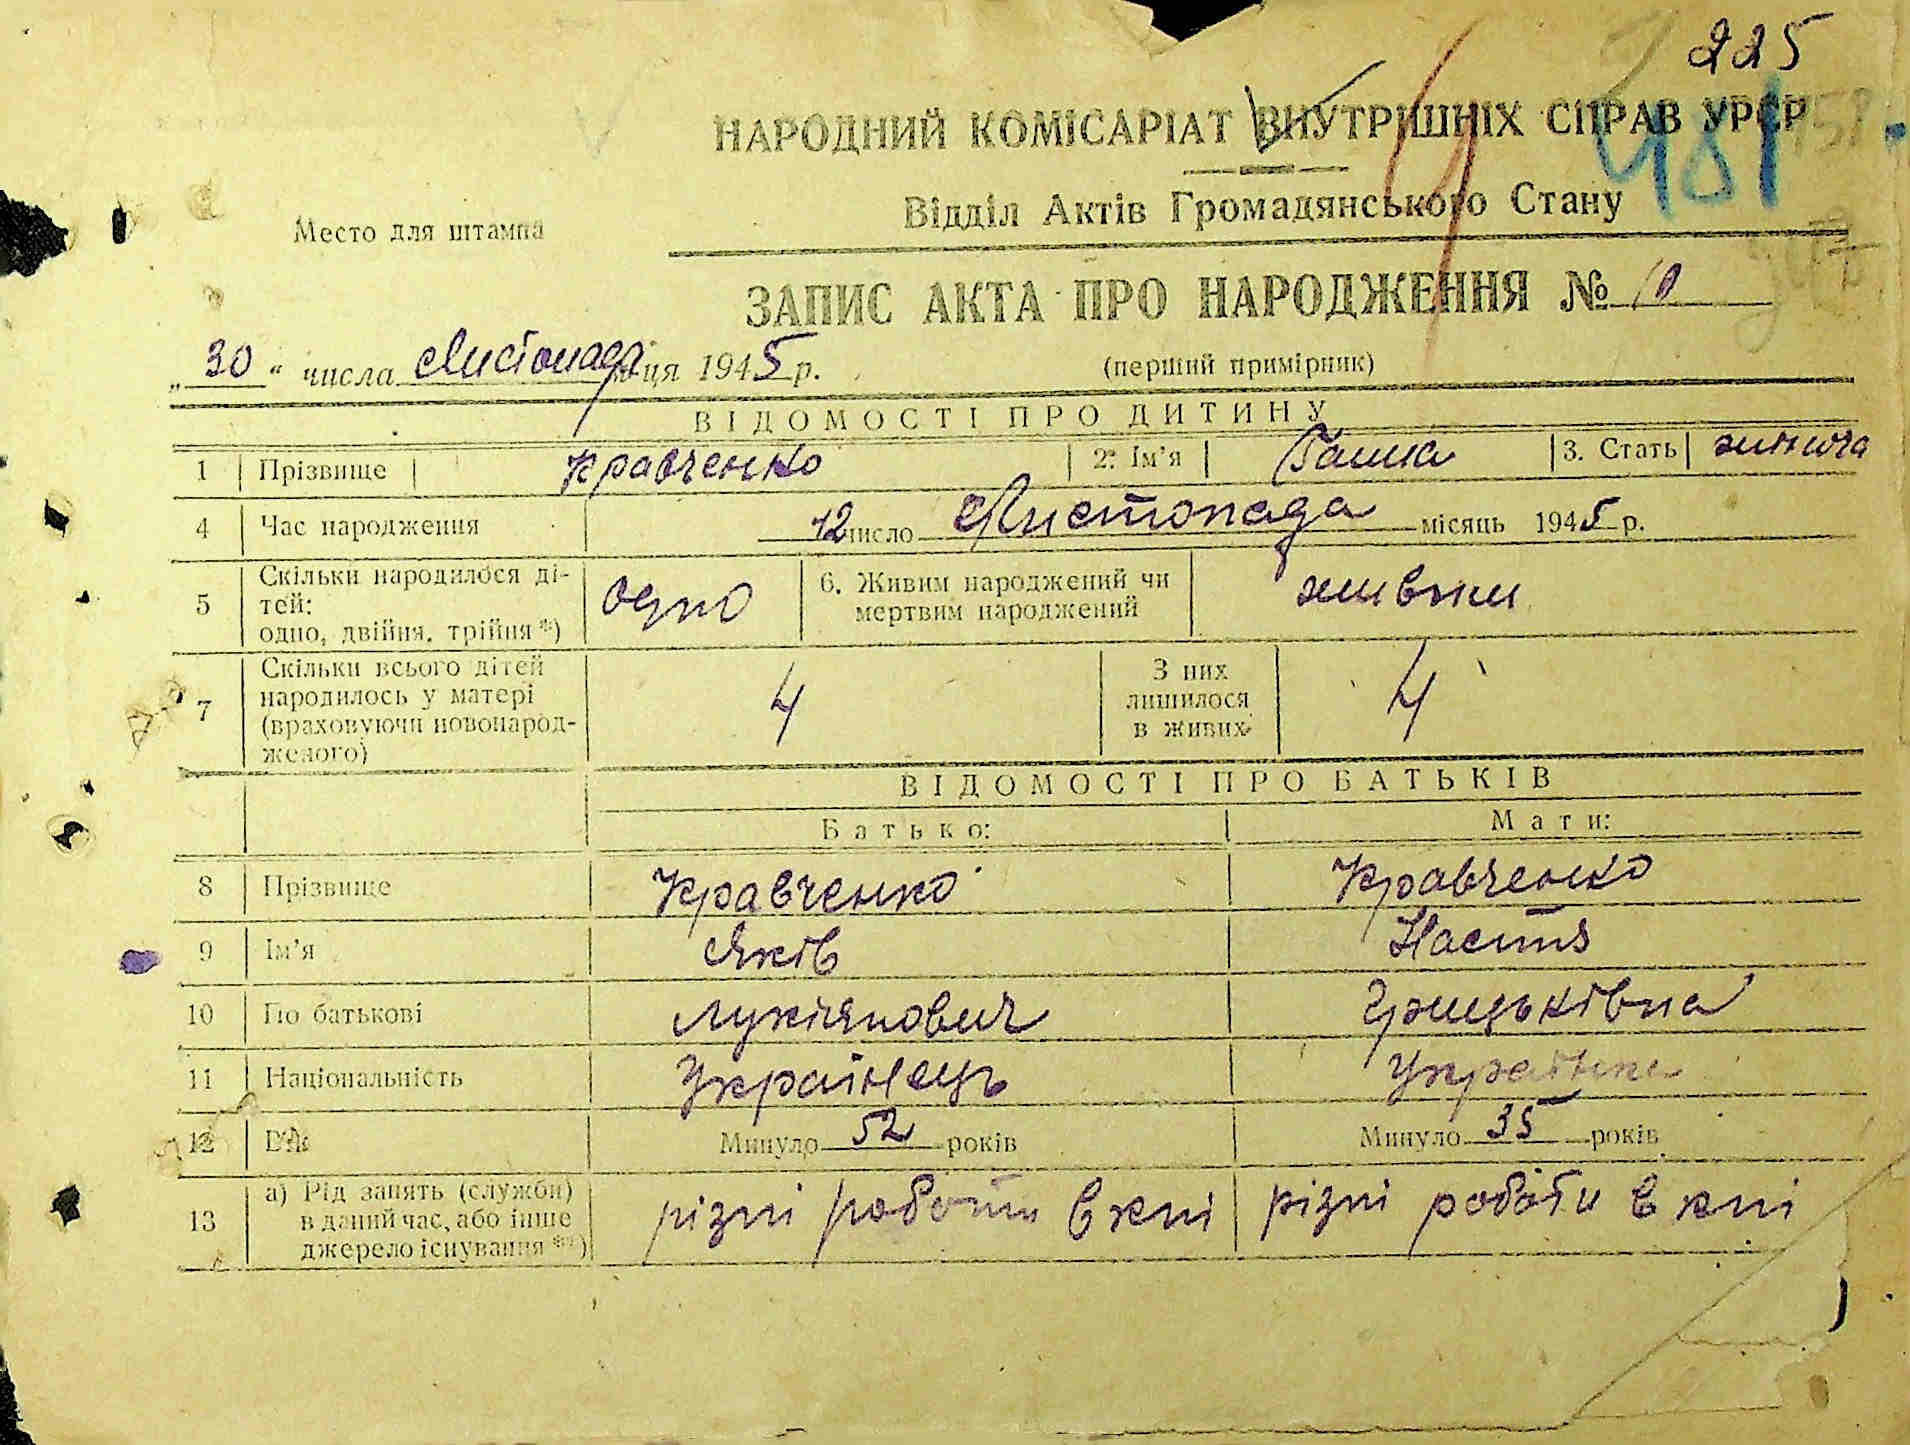 225
НАРОДНИЙ КОМІСАРІАТ ВНУТРІШНІХ СПРАВ УРСР
481
Відділ Актів Громадянського Стану
Место для штампа
ЗАПИС АКТА ПРО НАРОДЖЕННЯ № 10
„30“ числа Листопада м-ця 1945 р.
(перший примірник)
ВІДОМОСТІ ПРО ДИТИНУ
1 Прізвище Кравченко 2. Ім'я Ганна 3. Стать жиноча
4 Час народження 12 число Листопада місяць 1945 р.
5 Скільки народилося ді-
тей:
одно, двійня, трійня *) одно 6. Живим народжений чи
мертвим народжений живим
7 Скільки всього дітей
народилось у матері
(враховуючи новонарод-
женого) 4 З них
лишилося
в живих 4
ВІДОМОСТІ ПРО БАТЬКІВ
Батько: Мати:
8 Прізвище Кравченко Кравченко
9 Ім'я Яків Настя
10 По батькові Лукіянович Грицьківна
11 Національність Українець Українка
12 Вік Минуло 52 років Минуло 35 років
13 а) Рід занять (служби)
в даний час, або інше
джерело існування **) різні роботи в кпі різні роботи в кпі